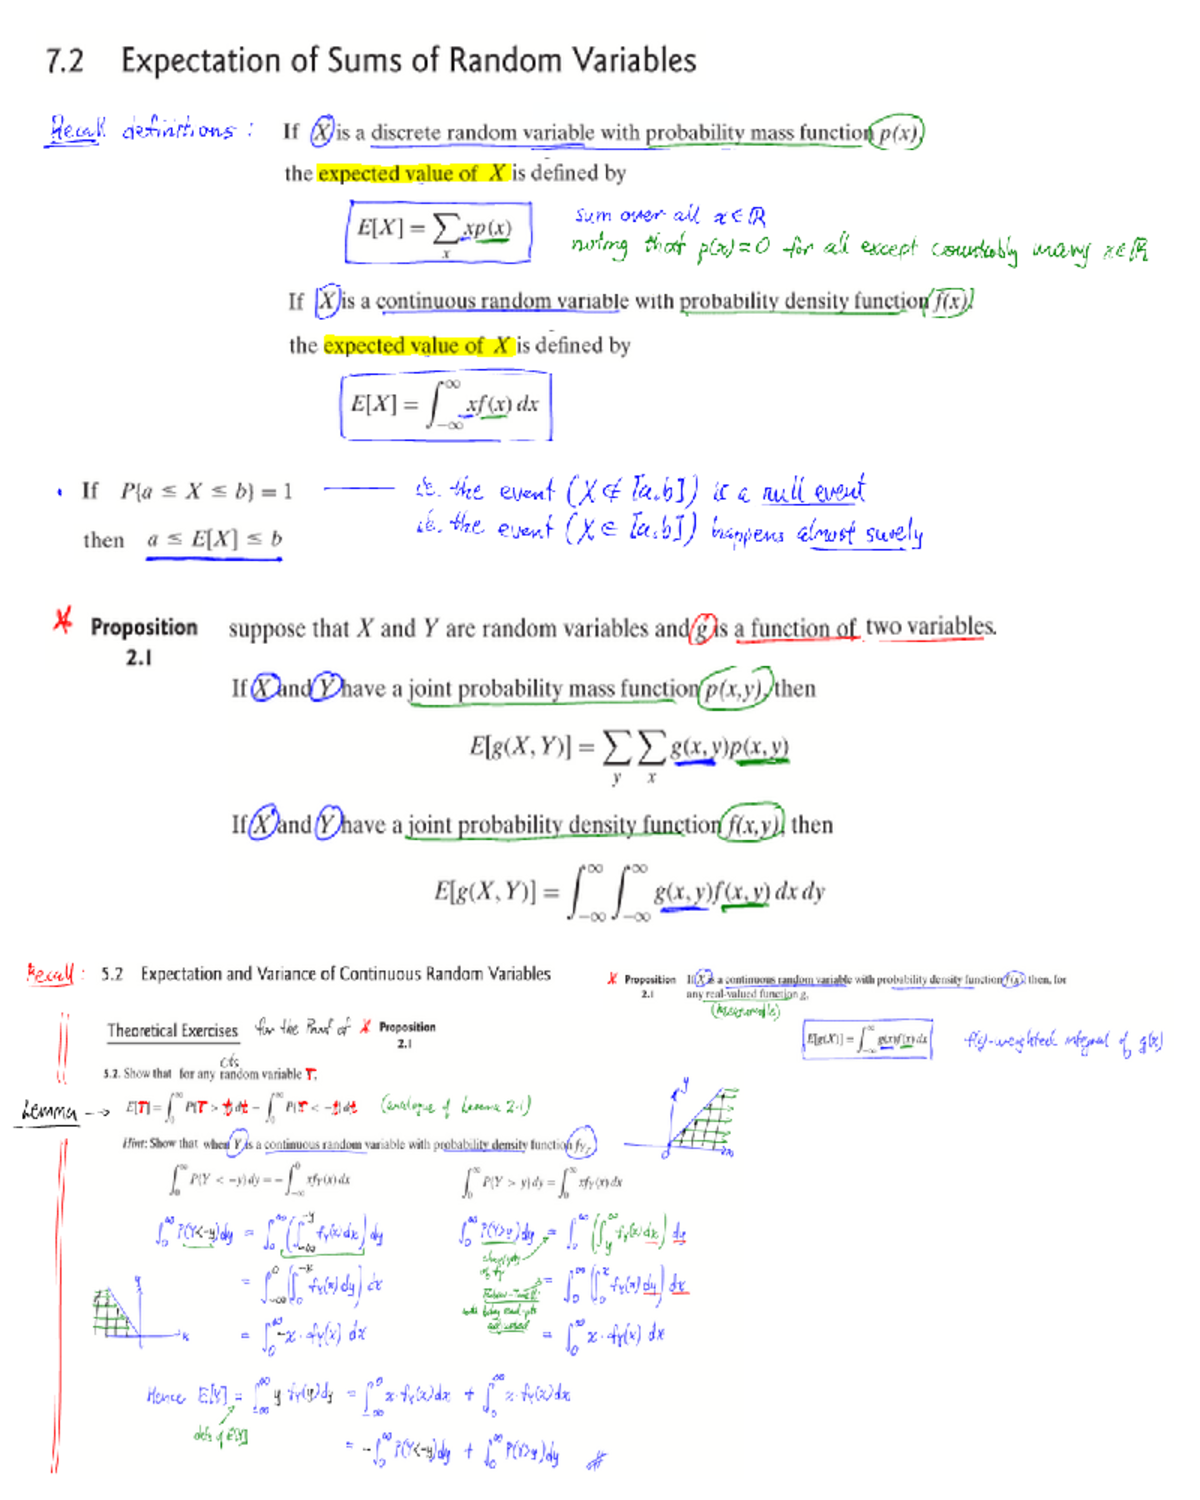 7.2 Expectation of Sums of Random Variables
Recall definitions : If X is a discrete random variable with probability mass function p(x),
the expected value of X is defined by
E[X] = ∑_x xp(x)
sum over all x ∈ ℝ
noting that p(x) = 0 for all except countably many x ∈ ℝ
If X is a continuous random variable with probability density function f(x),
the expected value of X is defined by
E[X] = ∫_{-∞}^{∞} xf(x) dx
• If P{a ≤ X ≤ b} = 1 —— ie. the event (X ∉ [a,b]) is a null event
then a ≤ E[X] ≤ b ie. the event (X ∈ [a,b]) happens almost surely
* Proposition 2.1 suppose that X and Y are random variables and g is a function of two variables.
If X and Y have a joint probability mass function p(x,y), then
E[g(X, Y)] = ∑_y ∑_x g(x, y)p(x, y)
If X and Y have a joint probability density function f(x,y), then
E[g(X, Y)] = ∫_{-∞}^{∞} ∫_{-∞}^{∞} g(x, y)f(x, y) dx dy
Recall : 5.2 Expectation and Variance of Continuous Random Variables
* Proposition 2.1 If X is a continuous random variable with probability density function f(x), then, for
any real-valued function g,
(measurable)
E[g(X)] = ∫_{-∞}^{∞} g(x)f(x) dx
f(x)-weighted integral of g(x)
Theoretical Exercises for the Proof of * Proposition 2.1
cts
5.2. Show that for any random variable T,
Lemma --> E[T] = ∫_0^∞ P{T > t} dt − ∫_0^∞ P{T < −t} dt (analogue of Lemma 2.1)
Hint: Show that when Y is a continuous random variable with probability density function f_Y,
∫_0^∞ P{Y < −y} dy = −∫_{-∞}^0 xf_Y(x) dx
∫_0^∞ P{Y > y} dy = ∫_0^∞ xf_Y(x) dx
∫_0^∞ P(Y<-y) dy = ∫_0^∞ (∫_{-∞}^{-y} f_Y(x) dx) dy
= ∫_{-∞}^0 (∫_0^{-x} f_Y(x) dy) dx
= ∫_0^∞ -x · f_Y(x) dx
∫_0^∞ P(Y>y) dy = ∫_0^∞ (∫_y^∞ f_Y(x) dx) dy
= ∫_0^∞ (∫_0^x f_Y(x) dy) dx
= ∫_0^∞ x · f_Y(x) dx
Hence E[Y] = ∫_{-∞}^∞ y f_Y(y) dy = ∫_{-∞}^0 x · f_Y(x) dx + ∫_0^∞ x · f_Y(x) dx
defn of E[Y]
= −∫_0^∞ P(Y<-y) dy + ∫_0^∞ P(Y>y) dy #